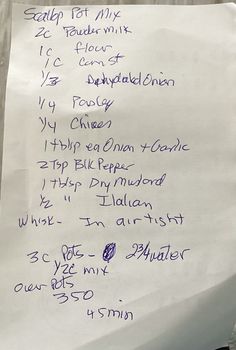 Scallop Pot Mix
2c Powder milk
1c flour
1c Corn st
1/3 Dehydrated Onion
1/4 Parsley
1/4 Chives
1 tblsp ea Onion + Garlic
2 Tsp Blk Pepper
1 tblsp Dry Mustard
1/2 " Italian
Whisk - In air tight
3c Pots - 2 3/4 water
1/2 c mix
over Pots
350
45 min